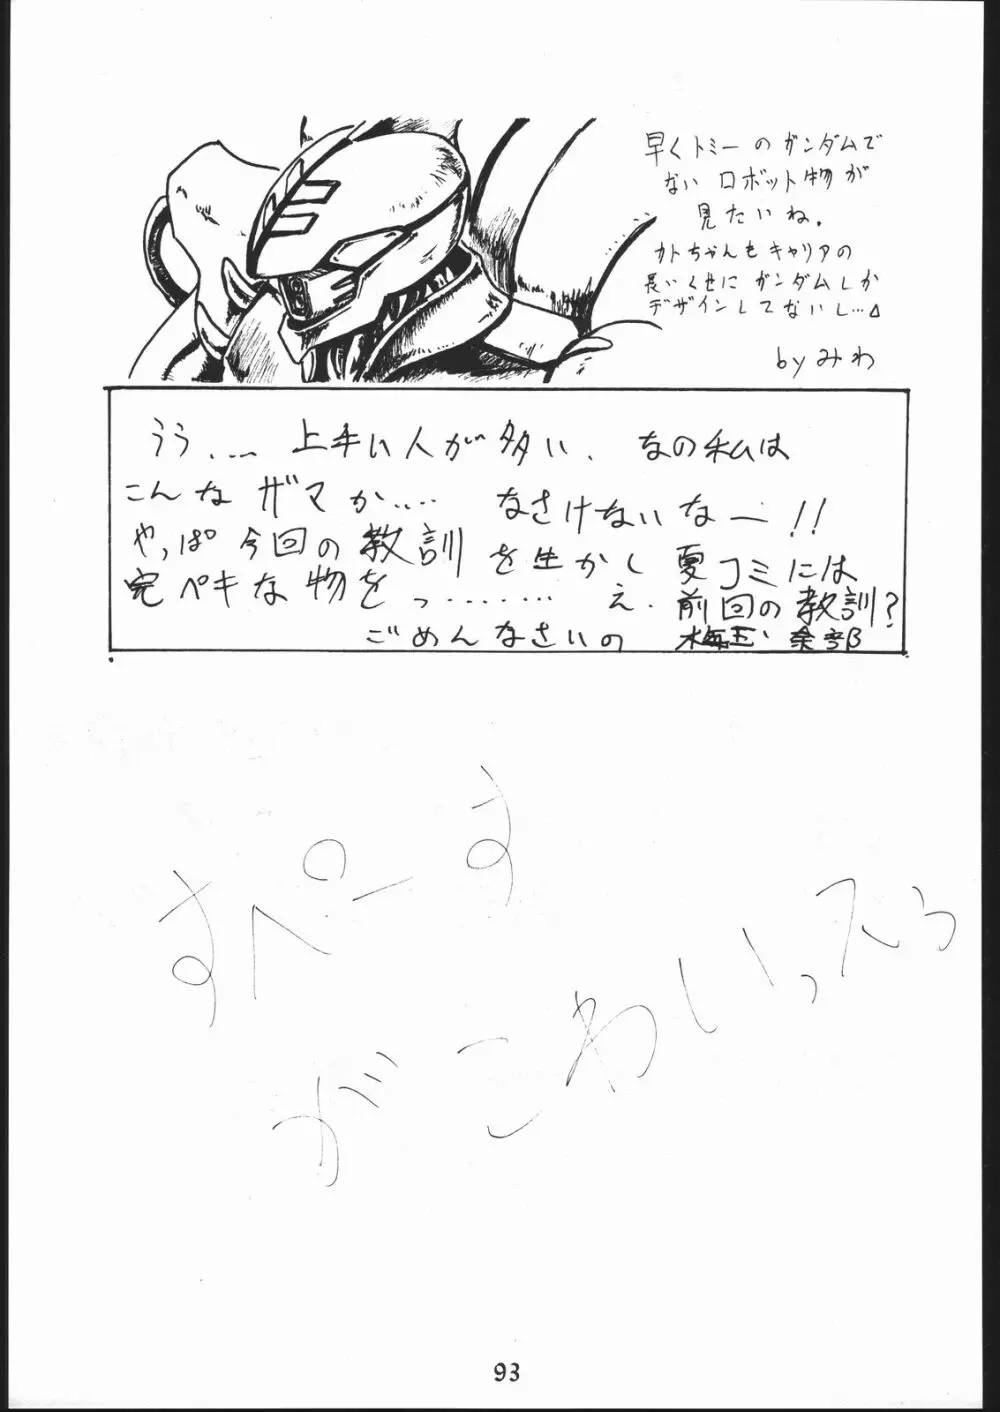 早くトミーのガンダムで
ない ロボット物が
見たいね.
カトちゃんもキャリアの
長いくせに ガンダムしか
デザインしてないし…△
by みわ
うう.... 上手い人が多い、なの私は
こんなザマか.... なさけないなー!!
やっぱ今回の教訓を生かし 夏コミには
完ペキな物をっ........ え. 前回の教訓?
ごめんなさいの 梅玉
すぺーす
がこわいってう
93